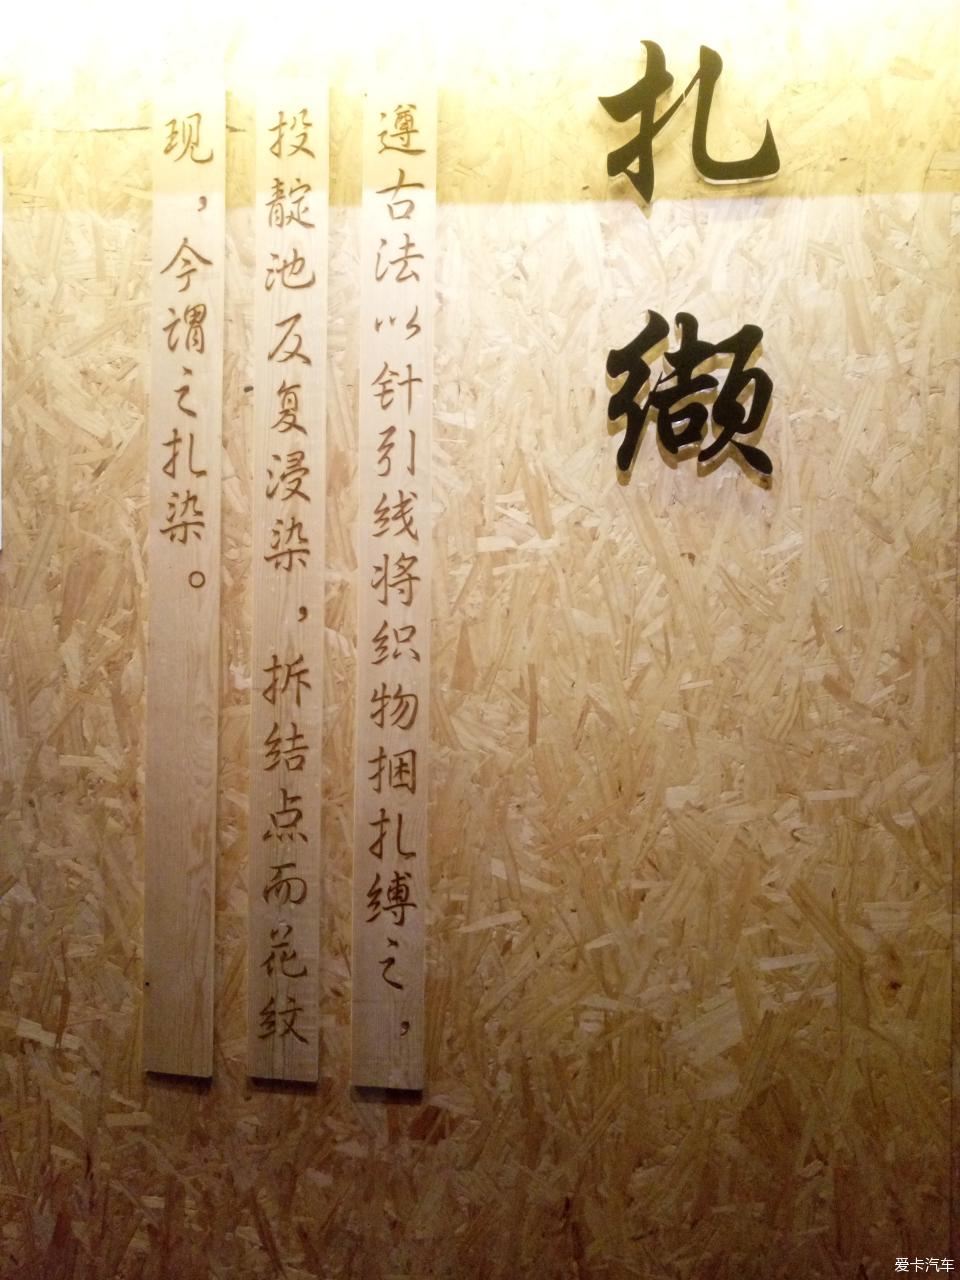 扎
缬
遵古法以针引线将织物捆扎缚之，
投靛池反复浸染，拆结点而花纹
现，今谓之扎染。
爱卡汽车